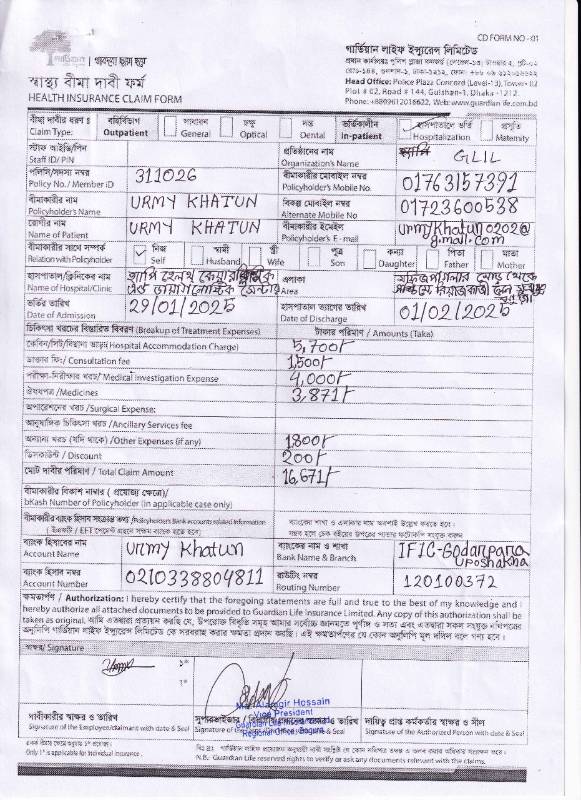 CD FORM NO - 01
গার্ডিয়ান লাইফ ইন্স্যুরেন্স লিমিটেড
স্বাস্থ্য বীমা দাবী ফর্ম
HEALTH INSURANCE CLAIM FORM
Head Office: Police Plaza Concord (Level-13), Tower- 02
Plot # 02, Road # 144, Gulshan-1, Dhaka -1212.
Phone: +8809612016622, Web: www.guardianlife.com.bd
বীমা দাবীর ধরণ ঃ বহির্বিভাগ সাধারন চক্ষু দন্ত ভর্তিকালীন হাসপাতালে ভর্তি প্রসূতি
Claim Type: Outpatient General Optical Dental In-patient Hospitalization Maternity
স্টাফ আইডি/পিন প্রতিষ্ঠানের নাম GILIL
Staff ID/ PIN Organization's Name
পলিসি/সদস্য নম্বর 311026 বীমাকারীর মোবাইল নম্বর 01763157391
Policy No./ Member ID Policyholder's Mobile No.
বীমাকারীর নাম URMY KHATUN বিকল্প মোবাইল নম্বর 01723600538
Policyholder's Name Alternate Mobile No
রোগীর নাম URMY KHATUN বীমাকারীর ইমেইল urmykhatun0202@
Name of Patient Policyholder's E- mail gmail.com
বীমাকারীর সাথে সম্পর্ক নিজ স্বামী স্ত্রী পুত্র কন্যা পিতা মাতা
Relation with Policyholder Self Husband Wife Son Daughter Father Mother
হাসপাতাল/ক্লিনিকের নাম হেলথ কেয়ার এলাকা
Name of Hospital/Clinic এন্ড ডায়াগনোস্টিক সেন্টার
ভর্তির তারিখ 29/01/2025 হাসপাতাল ত্যাগের তারিখ 01/02/2025
Date of Admission Date of Discharge
চিকিৎসা খরচের বিস্তারিত বিবরণ (Breakup of Treatment Expenses) টাকার পরিমাণ / Amounts (Taka)
কেবিন/সিট/বিছানা ভাড়া( Hospital Accommodation Charge) 5,700/-
ডাক্তার ফি:/ Consultation fee 1,500/-
পরীক্ষা-নিরীক্ষার খরচ/ Medical Investigation Expense 4,000/-
ঔষধপত্র /Medicines 3,871/-
অপারেশনের খরচ /Surgical Expense:
আনুষাঙ্গিক চিকিৎসা খরচ /Ancillary Services fee
অন্যান্য খরচ (যদি থাকে) /Other Expenses (if any) 1800/-
ডিসকাউন্ট / Discount 200/-
মোট দাবীর পরিমাণ / Total Claim Amount 16,671/-
বীমাকারীর বিকাশ নাম্বার ( প্রযোজ্য ক্ষেত্রে)/
bKash Number of Policyholder (in applicable case only)
বীমাকারীর ব্যাংক হিসাব সংক্রান্ত তথ্য /Policyholder's Bank accounts related Information
ব্যাংক হিসাবের নাম Urmy Khatun ব্যাংকের নাম ও শাখা IFIC-Godarpara
Account Name Bank Name & Branch Uposhakha
ব্যাংক হিসাব নম্বর 0210338804811 রাউটিং নম্বর 120100372
Account Number Routing Number
ক্ষমতার্পণ / Authorization: I hereby certify that the foregoing statements are full and true to the best of my knowledge and I
hereby authorize all attached documents to be provided to Guardian Life Insurance Limited. Any copy of this authorization shall be
taken as original. আমি এতদ্বারা প্রত্যয়ন করছি যে, উপরোক্ত বিবৃতি সমূহ আমার সর্বোচ্চ জ্ঞানমতে পূর্ণাঙ্গ ও সত্য এবং এতদ্বারা সকল সংযুক্ত নথিপত্রের
অনুলিপি গার্ডিয়ান লাইফ ইন্স্যুরেন্স লিমিটেড কে সরবরাহ করার ক্ষমতা প্রদান করছি। এই ক্ষমতার্পণের যে কোন অনুলিপি মূল দলিল বলে গণ্য হবে।
স্বাক্ষর/ Signature
১*
২*
Md. Alamgir Hossain
Vice President
Guardian Life
Regional Office, Bogura
দাবীকারীর স্বাক্ষর ও তারিখ স্বাক্ষর ও তারিখ দায়িত্ব প্রাপ্ত কর্মকর্তার স্বাক্ষর ও সীল
Signature of the Employee/claimant with date & Seal Signature of the Authorized Person with date & Seal
Only 1* is applicable for Individual Insurance .
N.B.: Guardian Life reserved rights to verify or ask any documents relevant with the claims.